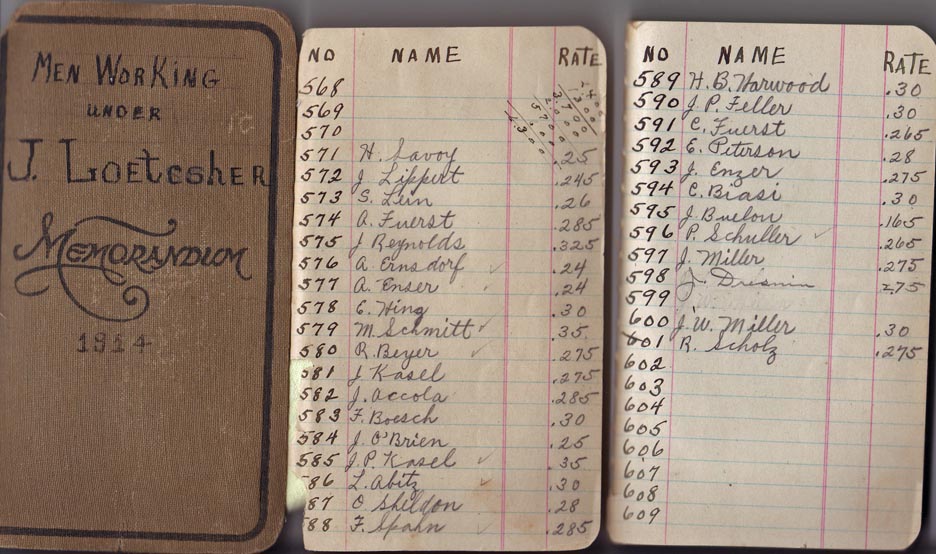 MEN WORKING
UNDER
J. LOETCSHER
MEMORANDUM
1914
NO NAME RATE
568
569
570
571 H. Savoy .25
572 J. Lippert .245
573 S. Lein .26
574 A. Fuerst .285
575 J. Reynolds .325
576 A. Ernsdorf ✓ .24
577 A. Enser ✓ .24
578 E. Wing .30
579 M. Schmitt ✓ .35
580 R. Beyer ✓ .275
581 J. Kasel .275
582 J. Accola .285
583 F. Boesch .30
584 J. O'Brien .25
585 J.P. Kasel ✓ .35
86 L. Abitz ✓ .30
87 O. Sheldon .28
88 F. Spahn ✓ .285
NO NAME RATE
589 H.B. Harwood .30
590 J.P. Feller .30
591 C. Fuerst .265
592 E. Peterson .28
593 J. Enzer .275
594 C. Biasi .30
595 J. Buelon .165
596 P. Schuller ✓ .265
597 J. Miller .275
598 J. .275
599
600 J.W. Miller .30
601 R. Scholz .275
602
603
604
605
606
607
608
609